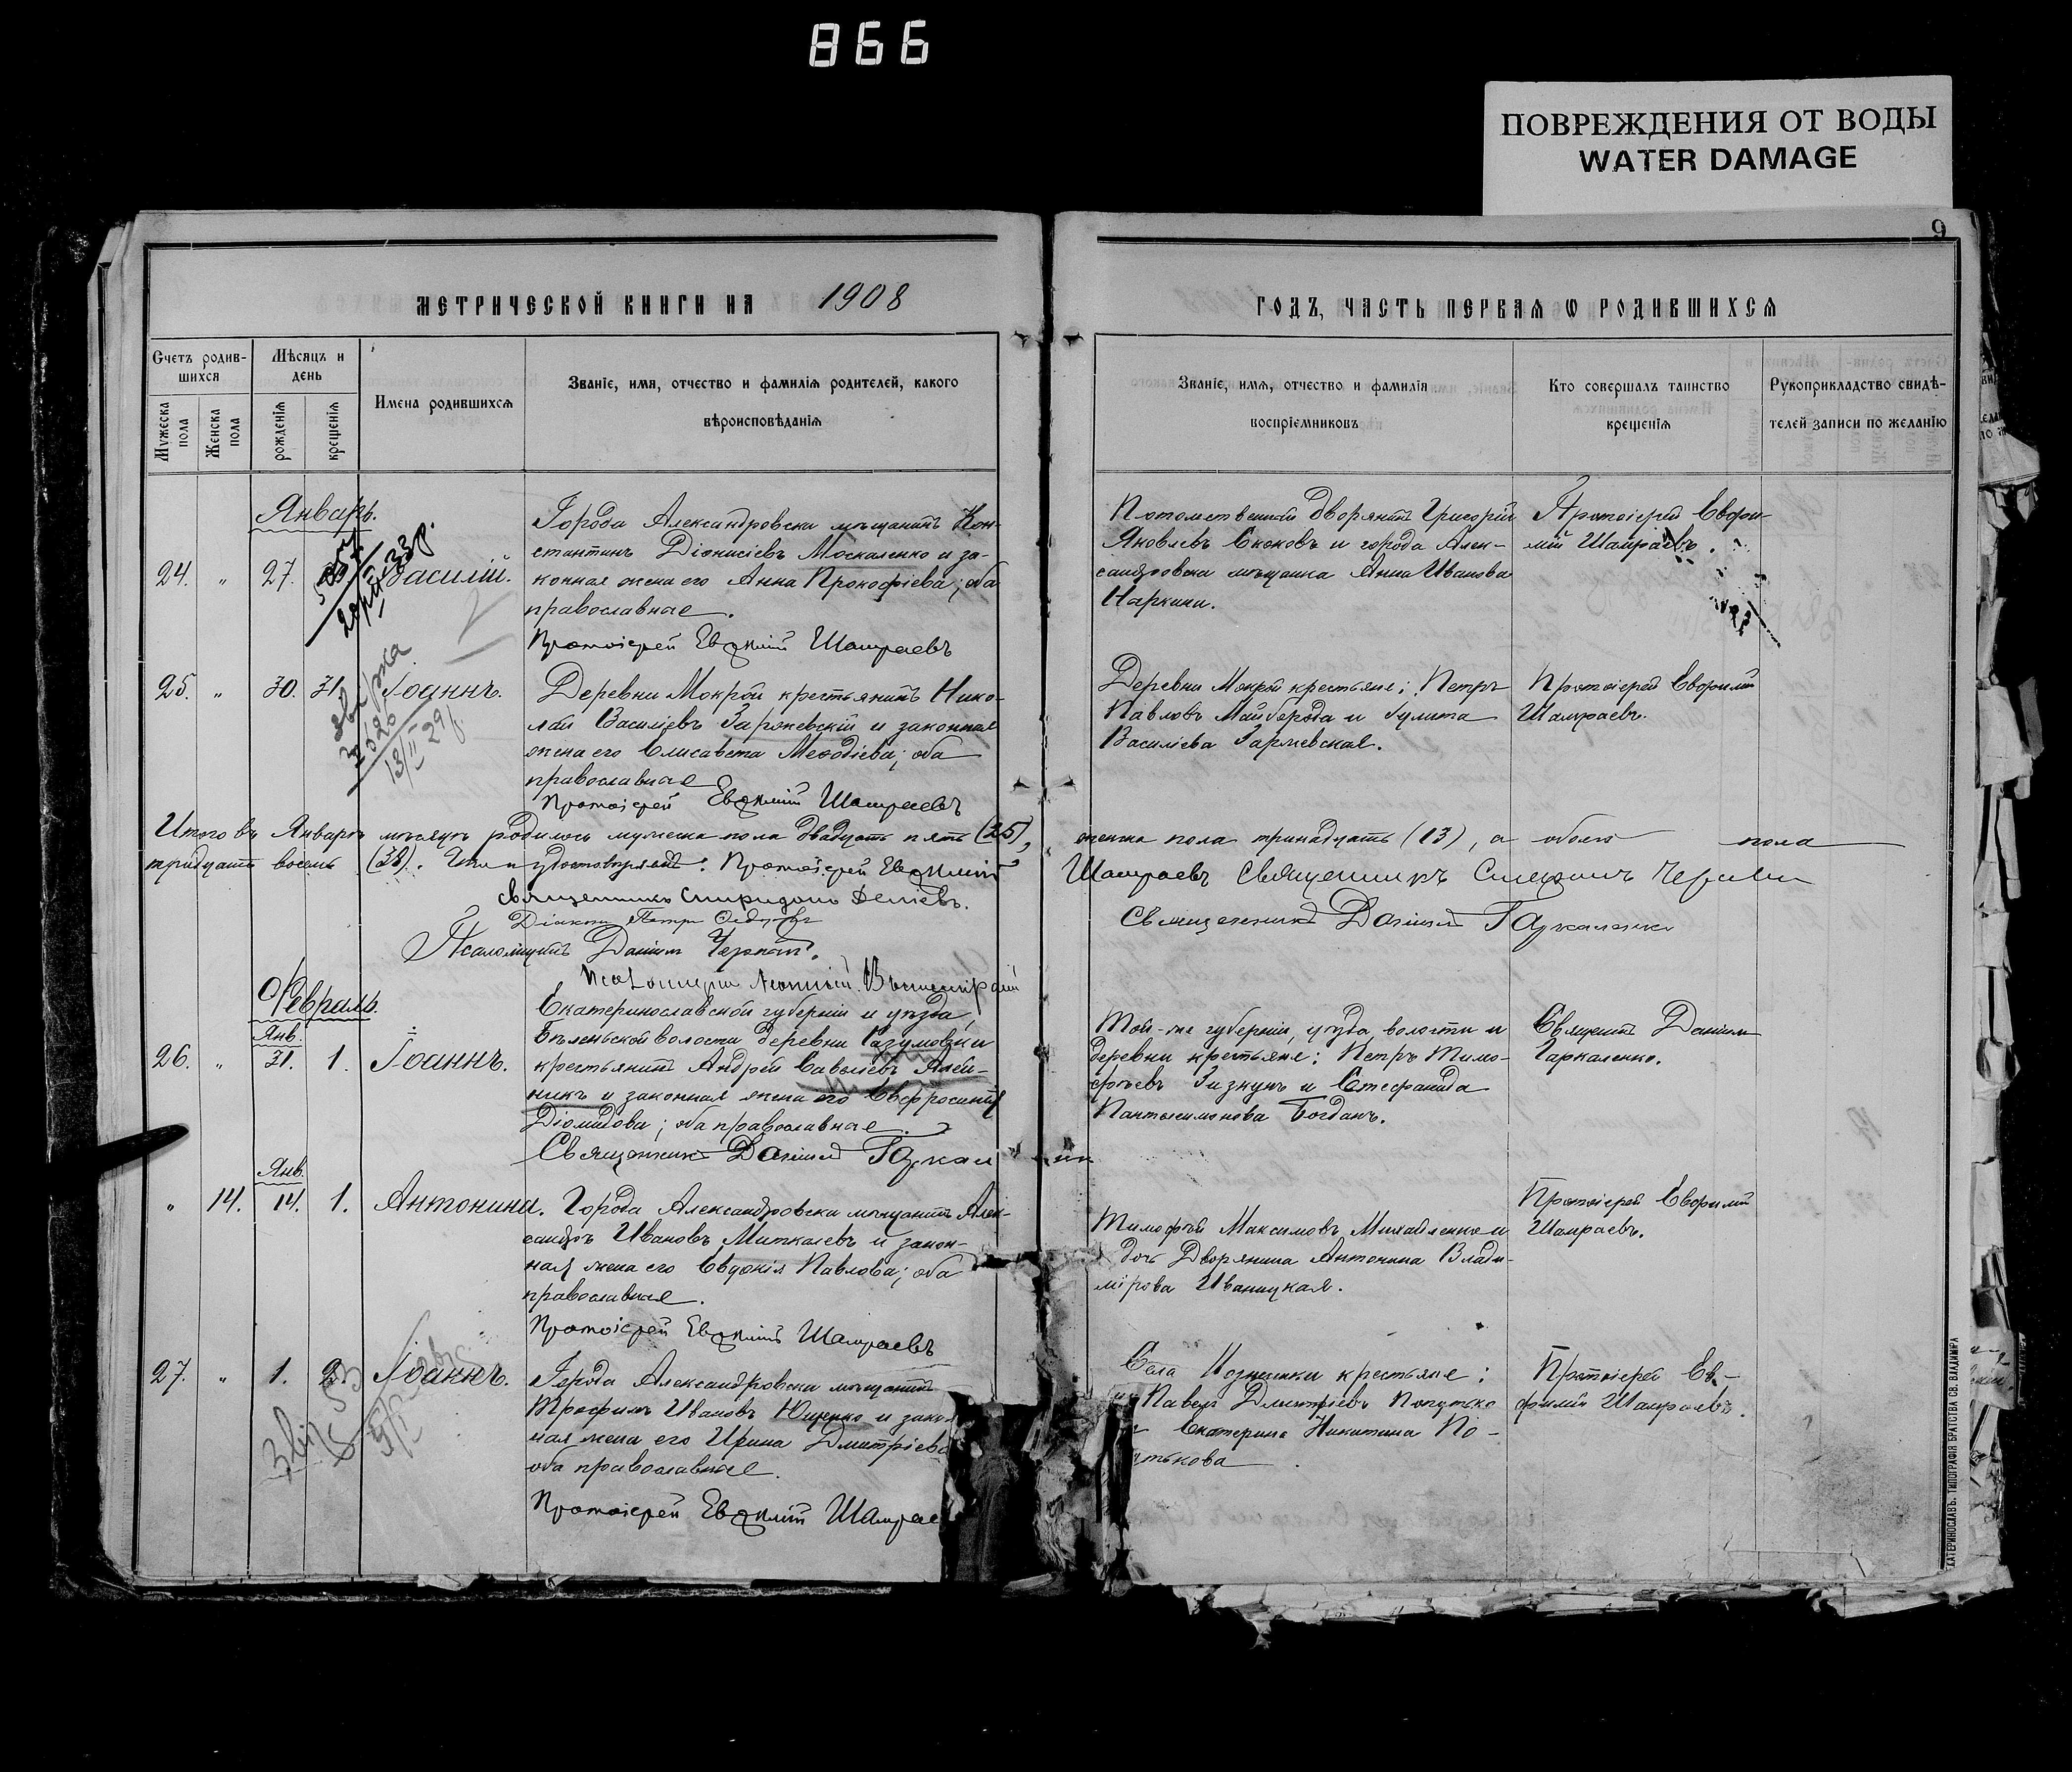 866
ПОВРЕЖДЕНИЯ ОТ ВОДЫ
WATER DAMAGE
9
МЕТРИЧЕСКОЙ КНИГИ НА 1908
ГОДЪ, ЧАСТЬ ПЕРВАЯ Ѡ РОДИВШИХСЯ
Счетъ родив-
шихся
Мѣсяцъ и
день
Имена родившихся
Званіе, имя, отчество и фамилія родителей, какого
вѣроисповѣданія
Мужеска пола
Женска пола
рожденія
крещенія
Званіе, имя, отчество и фамилія
воспріемниковъ
Кто совершалъ таинство
крещенія
Рукоприкладство свидѣ-
телей записи по желанію
Январь.
24. " 27. Василій.
Города Александровска мѣщанинъ Кон-
стантинъ Діонисіевъ Москаленко и за-
конная жена его Анна Прокофіева; оба
православные.
Протоіерей Евѳимій Шамраевъ
Потомственный дворянинъ Григорій
Яковлевъ и города Алек-
сандровска мѣщанка Анна Иванова
Протоіерей Евфи-
мій Шамраевъ.
25. " 30. 31. Іоаннъ.
Деревни Мокрой крестьянинъ Нико-
лай Василіевъ и законная
жена его Елисавета Меѳодіева; оба
православные
Протоіерей Евѳимій Шамраевъ
Деревни Мокрой крестьяне: Петръ
Павловъ Майборода и
Василіева
Протоіерей Евфимій
Шамраевъ.
13/II 29 г.
Итого въ Январѣ мѣсяцѣ родилось мужеска пола двадцать пять (25),
женска пола тринадцать (13), а обоего пола
тридцать восемь (38). Протоіерей Евѳимій
Шамраевъ Священникъ
Священникъ Спиридонъ
Священникъ Даніилъ Гаркаленко
Діаконъ Петръ
Псаломщикъ Даніилъ
Псаломщикъ
Февраль.
Янв.
26. " 31. 1. Іоаннъ.
Екатеринославской губерніи и уѣзда,
Бѣленьской волости деревни Разумовки
крестьянинъ Андрей Савельевъ Алей-
никъ и законная жена его Евфросинія
Діомидова; оба православные.
Священникъ Даніилъ Гаркаленко
Той-же губерніи, уѣзда, волости и
деревни крестьяне: Петръ Тимо-
феевъ и Стефанида
Пантелимонова Богданъ.
Священ. Даніилъ
Гаркаленко.
Янв.
" 14. 14. 1. Антонина.
Города Александровска мѣщанинъ Алек-
сандръ Ивановъ Миткалевъ и закон-
ная жена его Евдокія Павлова; оба
православные.
Протоіерей Евѳимій Шамраевъ
Тимофей Максимовъ Михайленко и
дочь Дворянина Антонина Влади-
мірова Иваницкая.
Протоіерей Евфимій
Шамраевъ.
27. " 1. 2. Іоаннъ.
Города Александровска мѣщанинъ
Трофимъ Ивановъ Ющенко и закон
ная жена его Ирина Дмитріева
оба православные.
Протоіерей Евѳимій Шамрае
Села Вознесенки крестьяне:
Павелъ Дмитріевъ Попутько
Екатерина Никитина По-
утькова
Протоіерей Ев-
фимій Шамраевъ.
КАТЕРИНОСЛАВЪ. ТИПОГРАФІЯ БРАТСТВА СВ. ВЛАДИМІРА